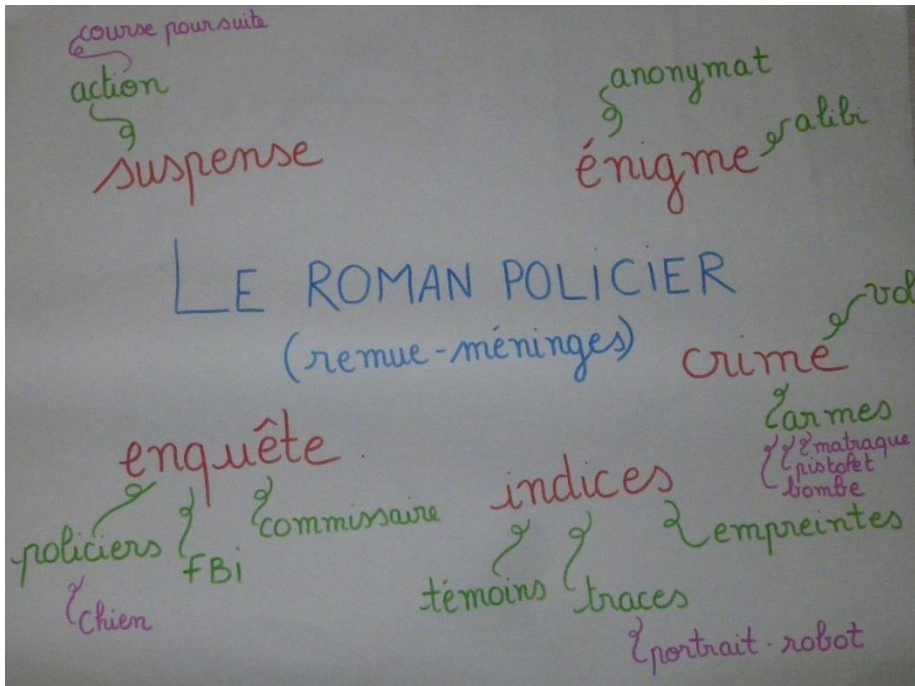 course poursuite
action
suspense
anonymat
alibi
énigme
LE ROMAN POLICIER
(remue-méninges)
vol
crime
armes
matraque
pistolet
bombe
enquête
policiers
FBi
commissaire
chien
indices
témoins
traces
empreintes
portrait-robot